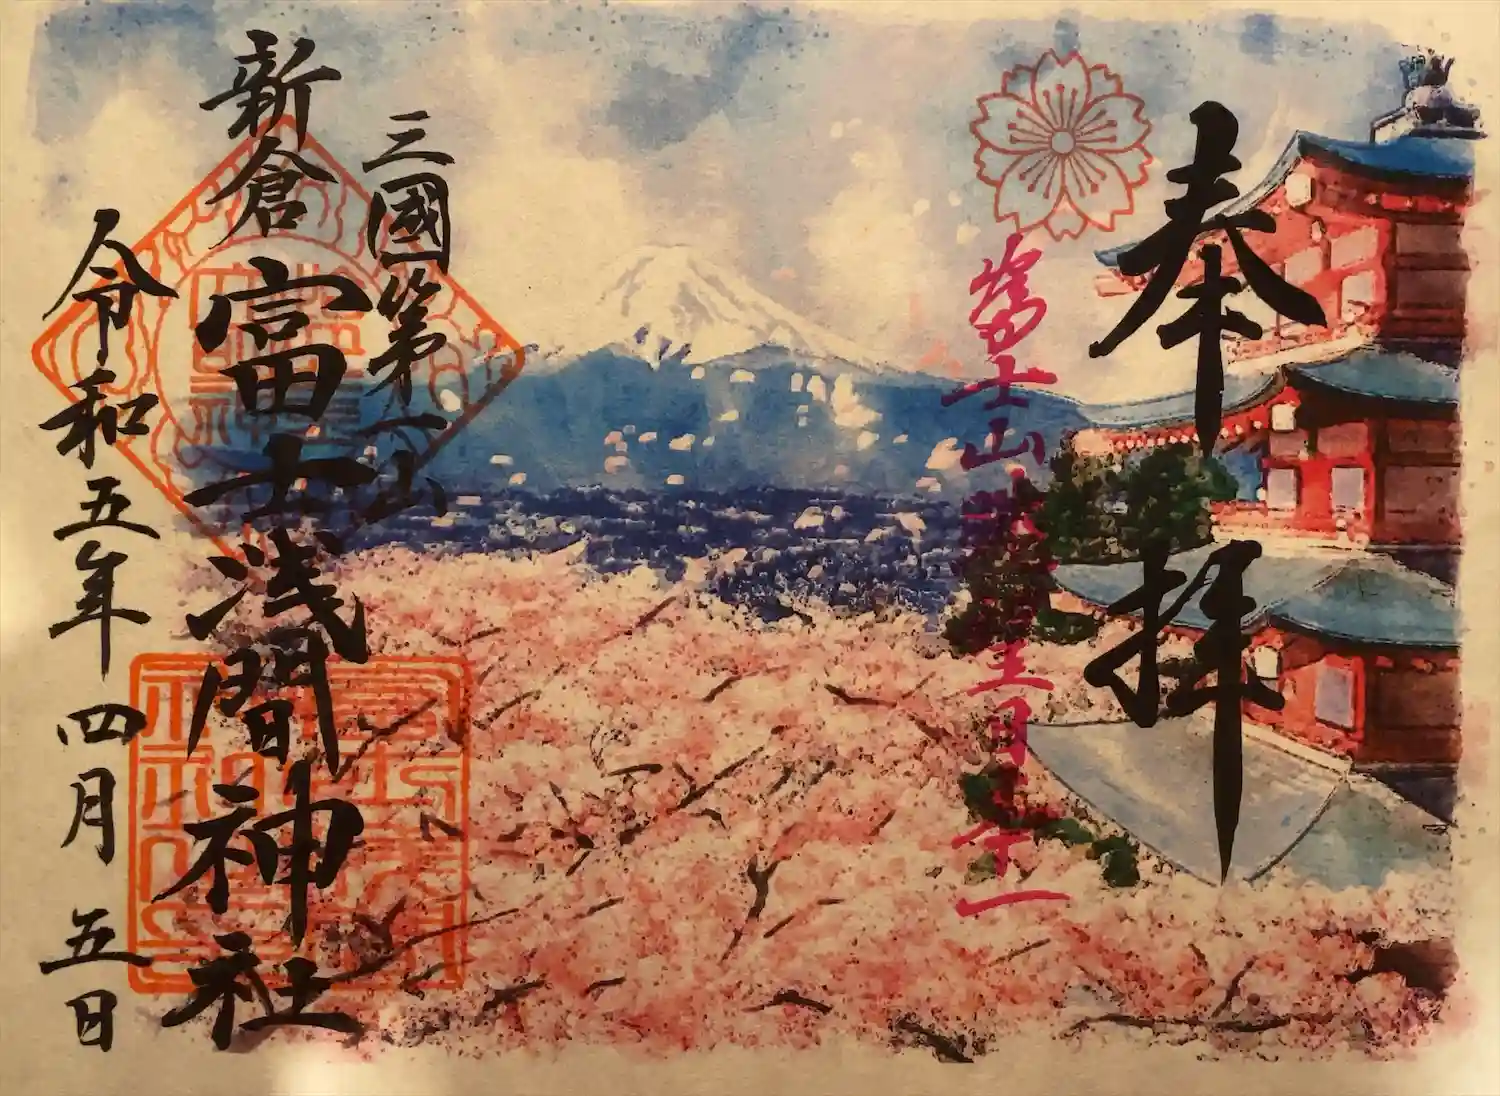 奉拝
富士山
三國第一山
新倉富士浅間神社
令和五年四月五日